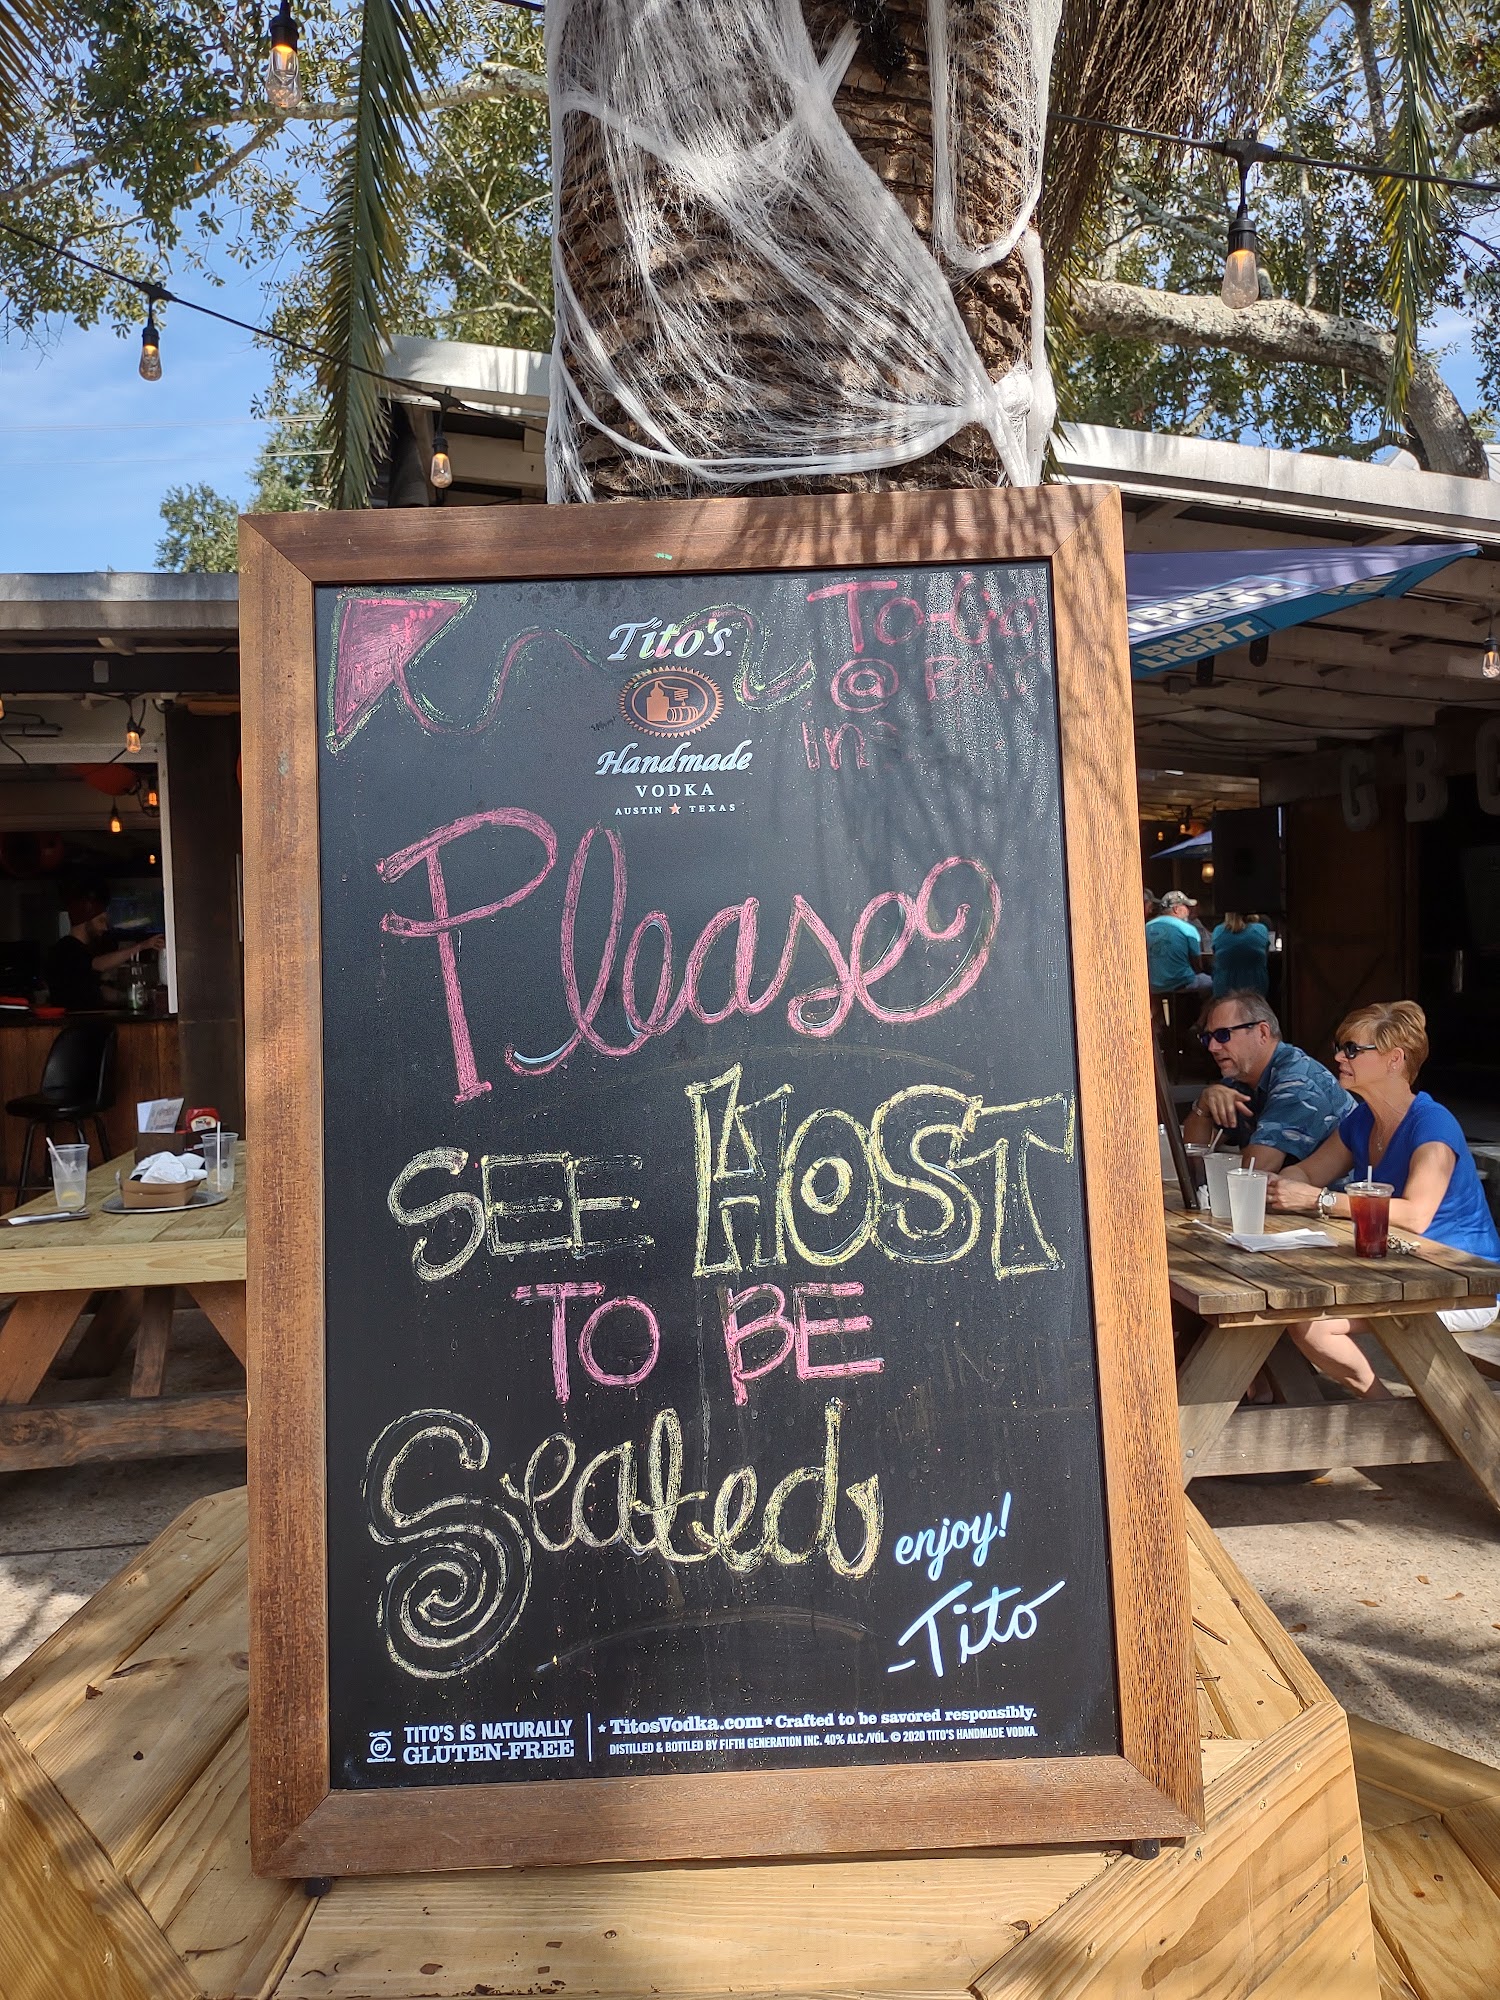 To-Go
@ Bar
in
Tito's
Handmade
VODKA
AUSTIN ★ TEXAS
Please
SEE HOST
TO BE
Seated
enjoy!
-Tito
Certified
GF
Gluten-Free
TITO'S IS NATURALLY
GLUTEN-FREE
★ TitosVodka.com ★ Crafted to be savored responsibly.
DISTILLED & BOTTLED BY FIFTH GENERATION INC. 40% ALC./VOL. © 2020 TITO'S HANDMADE VODKA.
BUD LIGHT
BUD
LIGHT
G B